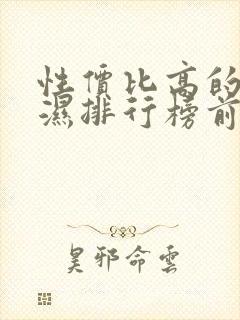 性價比高的
濕排行榜前
昊邪命雲